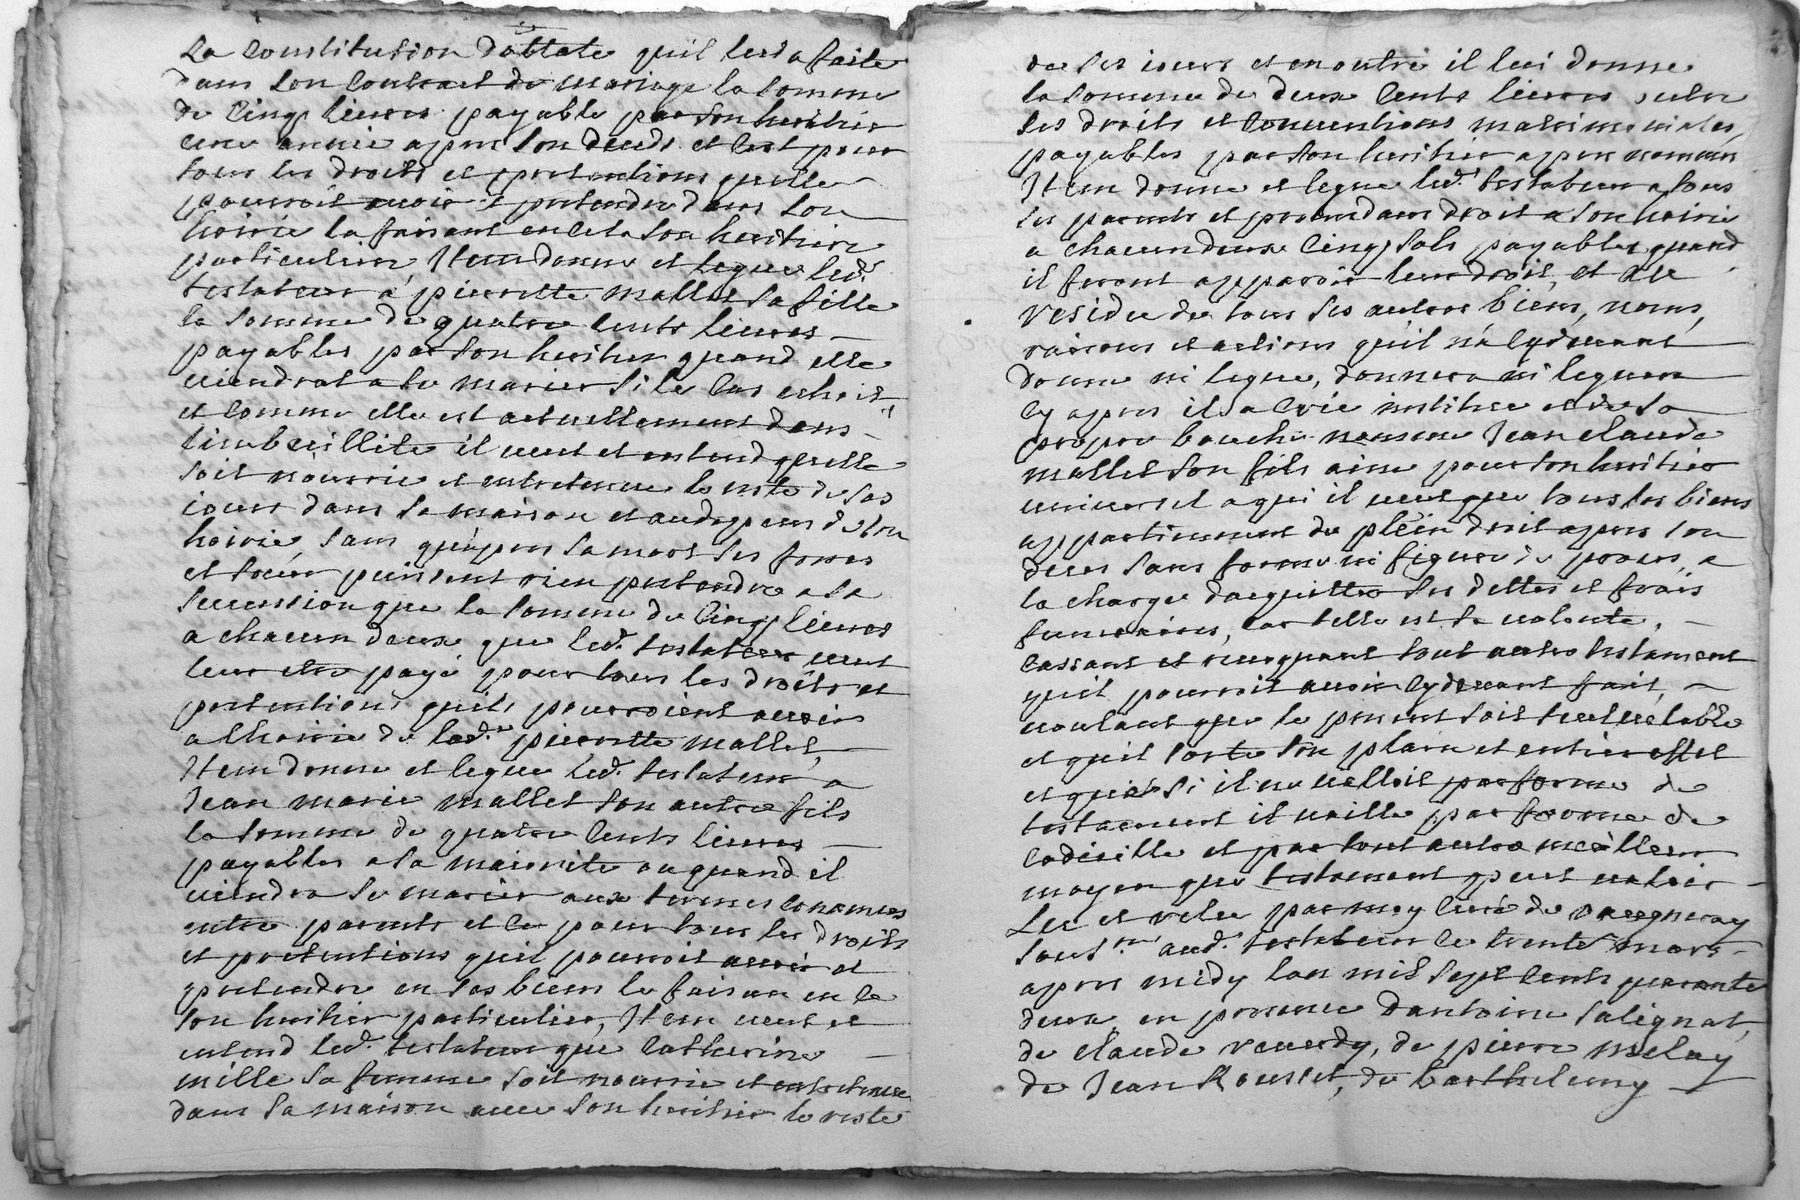 La Constitution dottale quil luy a faite
dans son Contract de mariage la somme
de Cinq livres payable par son heritier
une année apres son deceds et Cest pour
tous les droits et pretentions quelle
pourroit avoir et pretendre dans son
hoirie la faisant en cela son heritiere
particuliere, Item donne et legue led.
testateur a pierrette mallet sa fille
la somme de quatre Cents livres
payables par son heritier quand elle
viendrat a se marier si le Cas echoit
et Comme elle est actuellement dans
limbecillite il veut et entend quelle
soit nourrie et entretenue le reste de ses
iours dans sa maison et au depens de son
hoirie, sans qu'apres sa mort ses freres
et soeur puissent rien pretendre a sa
sucession que la somme de Cinq livres
a chacun deux que led. testateur veut
leur etre payé pour tous les droits et
pretentions quils pourroient avoir
a lhoirie de lad. pierrette mallet,
Item donne et legue led. testateur a
Jean marie mallet son autre fils
la somme de quatre Cents livres
payables a sa maiorite ou quand il
viendra se marier aux termes convenus
entre parents et Ce pour tous les droits
et pretentions quil pourroit avoir et
pretendre en ses biens le faisan en Ce
son heritier particulier, Item veut et
entend led. testateur que Catherine
mille sa femme soit nourrie et entretenue
dans sa maison avec son heritier le reste
de ses iours et en outre il lui donne
la somme de deux Cents livres outre
ses droits et Conventions matrimoniales,
payables par son heritier apres nommer
Item donne et legue led. testateur a tous
ses parents et pretendans droit a son hoirie
a chacun deux Cinq sols payables quand
il feront apparoir leur droit, et au
residu de tous ses autres biens, noms,
raisons et actions qu'il n'a Cydevant
donne ni legue, donnera ni leguera
Cy apres il a Crée institue et de sa
propre bouche nomme Jean claude
mallet son fils aine pour son heritier
universel a qui il veut que tous ses biens
appartiennent de plein droit apres son
deces sans forme ni figure de proces, a
la charge dacquitter ses dettes et frais
funeraires, Car telle est sa volonte,
Cassant et revoquant tout autre testament
quil pourroit avoir Cydevant fait,
voulant que le present soit seul valable
et quil sorte son plain et entier effet
et que si il ne valloit par forme de
testament il vaille par forme de
Codicille et par tout autre meilleur
moyen que testament peut valoir
Leu et releu par moy Curé de
sous. aud. testateur le trente mars
apres midy lan mil sept Cents quarante
deux en presence dantoine Salignat,
de Claude reverdy, de pierre melay
de Jean Rousset, de barthelemy